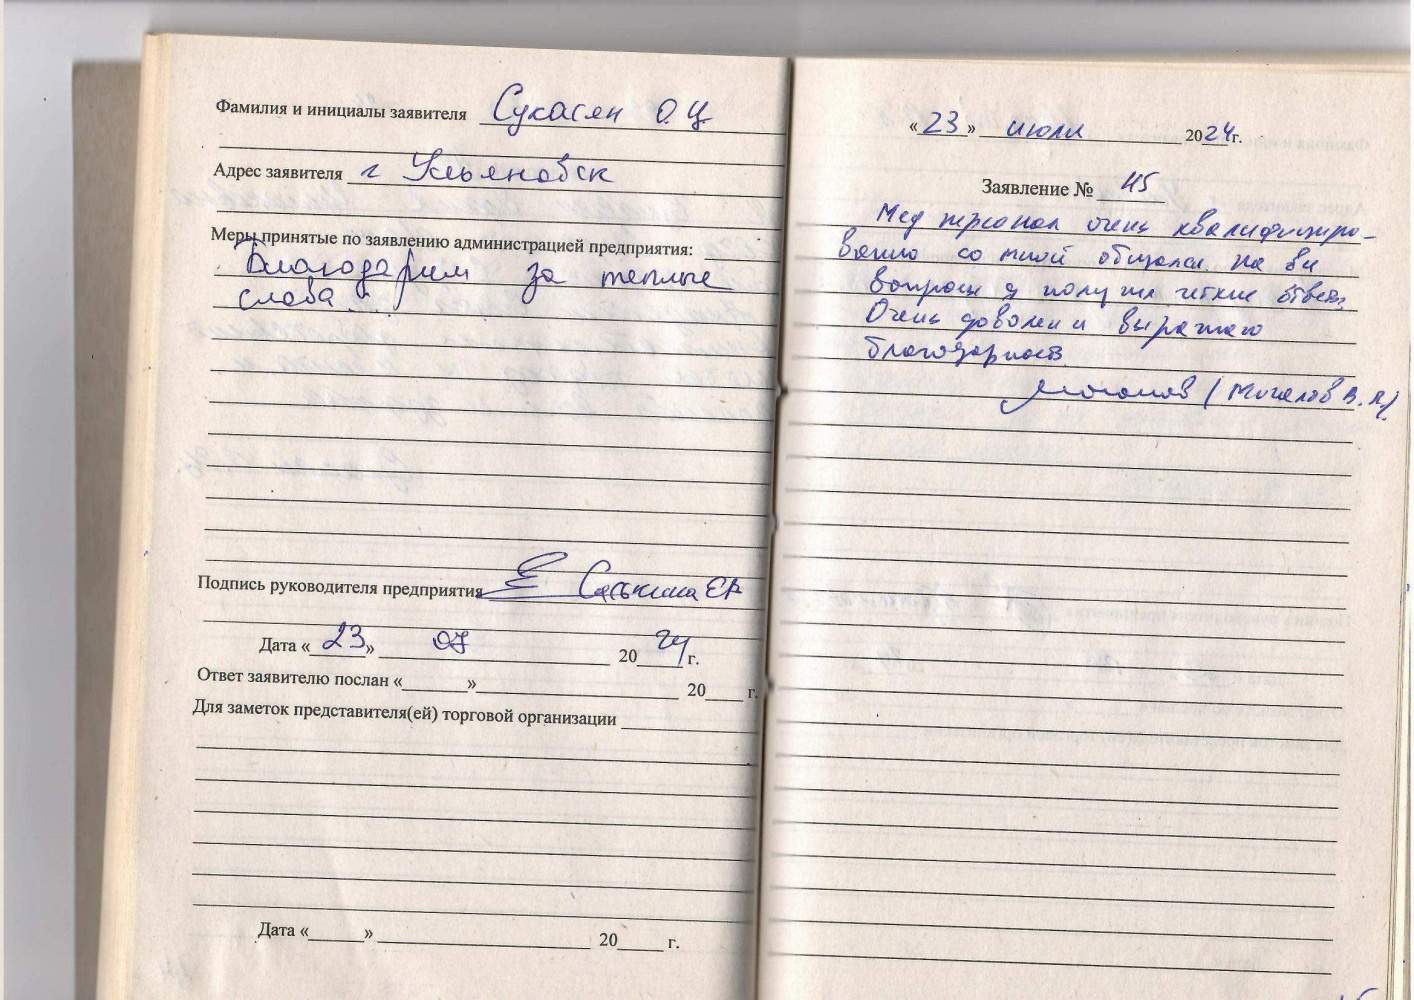 Фамилия и инициалы заявителя Сукасян О.Ц
Адрес заявителя г Ульяновск
Меры принятые по заявлению администрацией предприятия:
Благодарим за теплые
слова...
Подпись руководителя предприятия Саськина ЕВ
Дата «23» 07 2024 г.
Ответ заявителю послан «______»____________ 20____ г.
Для заметок представителя(ей) торговой организации
Дата «______» ____________ 20____ г.
«23» июля 2024г.
Заявление № 45
Мед персонал очень квалифициро-
ванно со мной общался, на вси
вопросы я получил четкие ответы.
Очень доволен и выражаю
благодарность
(Мочалов В.А)